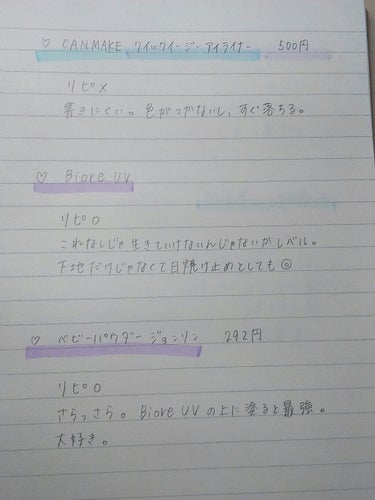 ♡ CANMAKE クイックイージーアイライナー 500円
リピ×
書きにくい。色がつかないし、すぐ落ちる。
♡ Biore UV
リピ○
これなしじゃ生きていけないんじゃないかレベル。
下地だけじゃなくて日焼け止めとしても◎
♡ ベビーパウダー ジョンソン 292円
リピ○
さらっさら。Biore UVの上に塗ると最強。
大好き。